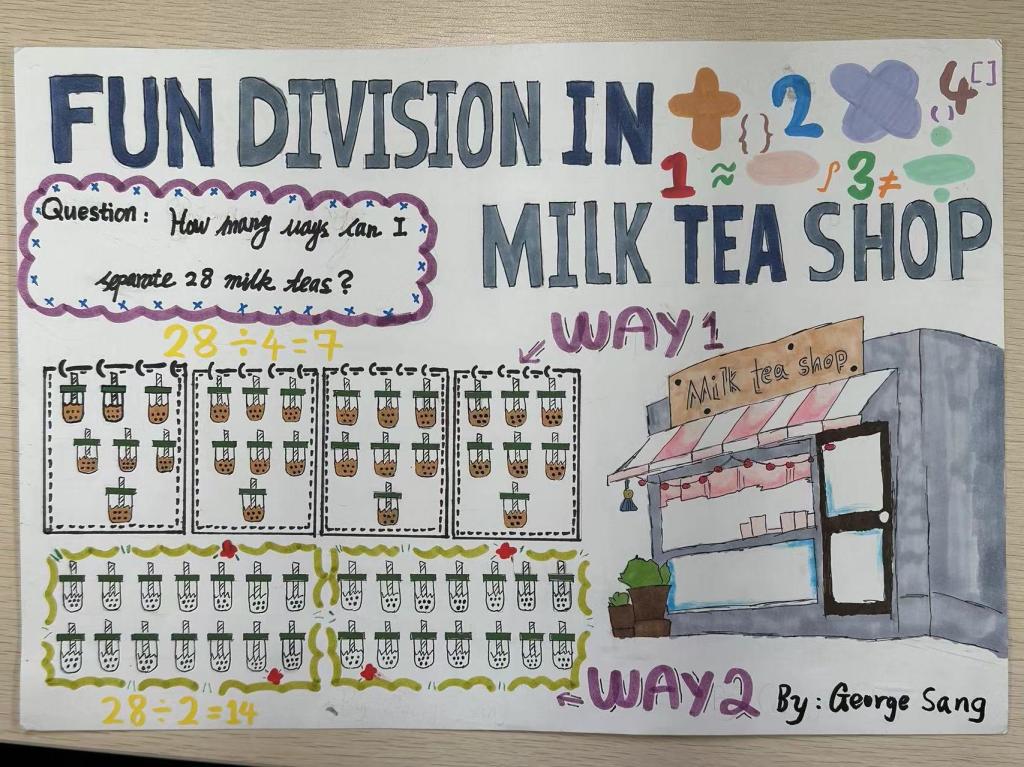 FUN DIVISION IN
{ } 2 4 [ ]
( )
1 ≈ ∫ 3 ≠ ÷
MILK TEA SHOP
Question: How many ways can I
separate 28 milk teas?
28÷4=7
WAY 1
Milk tea shop
28÷2=14
WAY 2
By: George Sang